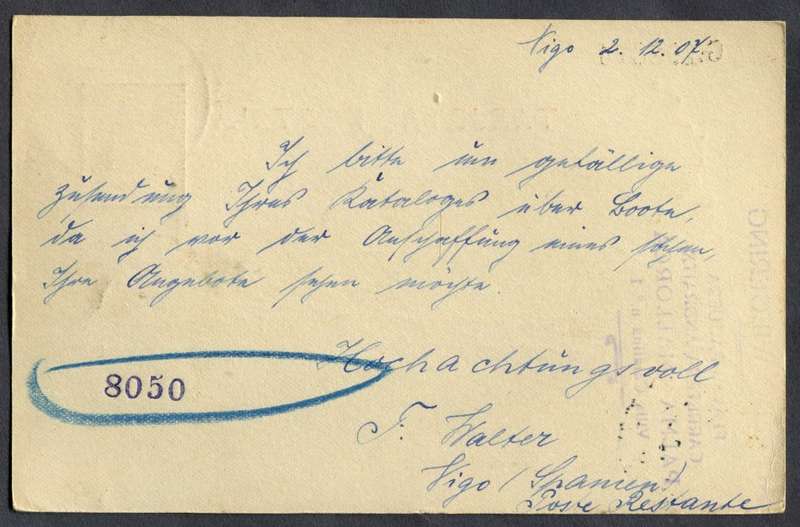 Vigo 2. 12. 07.
Ich bitte um gefällige
Zusendung Ihres Kataloges über Boote,
da ich vor der Anschaffung eines solchen,
Ihre Angebote sehen möchte.
Hochachtungsvoll
8050
F. Walter
Vigo (Spanien)
Poste Restante